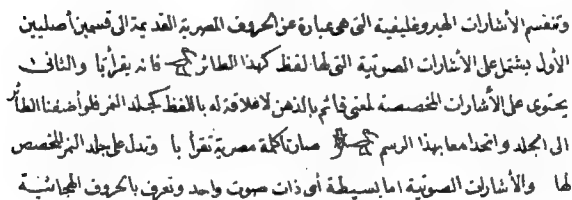 وتنقسم الأشارات الهيروغليفية التى هى عبارة عن الحروف المصرية القديمة الى قسمين أصليين
الأول يشتمل على الأشارات الصوتية التى لها لفظ كهذا الطائر فانه يقرأ با والثانى
يحتوى على الأشارات المخصصة لمعنى قائم بالذهن لاعلاقة له باللفظ كجلد النمر فلو أضفنا الطائر
الى الجلد واتحدا معا بهذا الرسم صارتا كلمة مصرية تقرأ با وتدل على جلد النمر المخصص
لها والأشارات الصوتية اما بسيطة أى ذات صوت واحد وتعرف بالحروف الهجائية